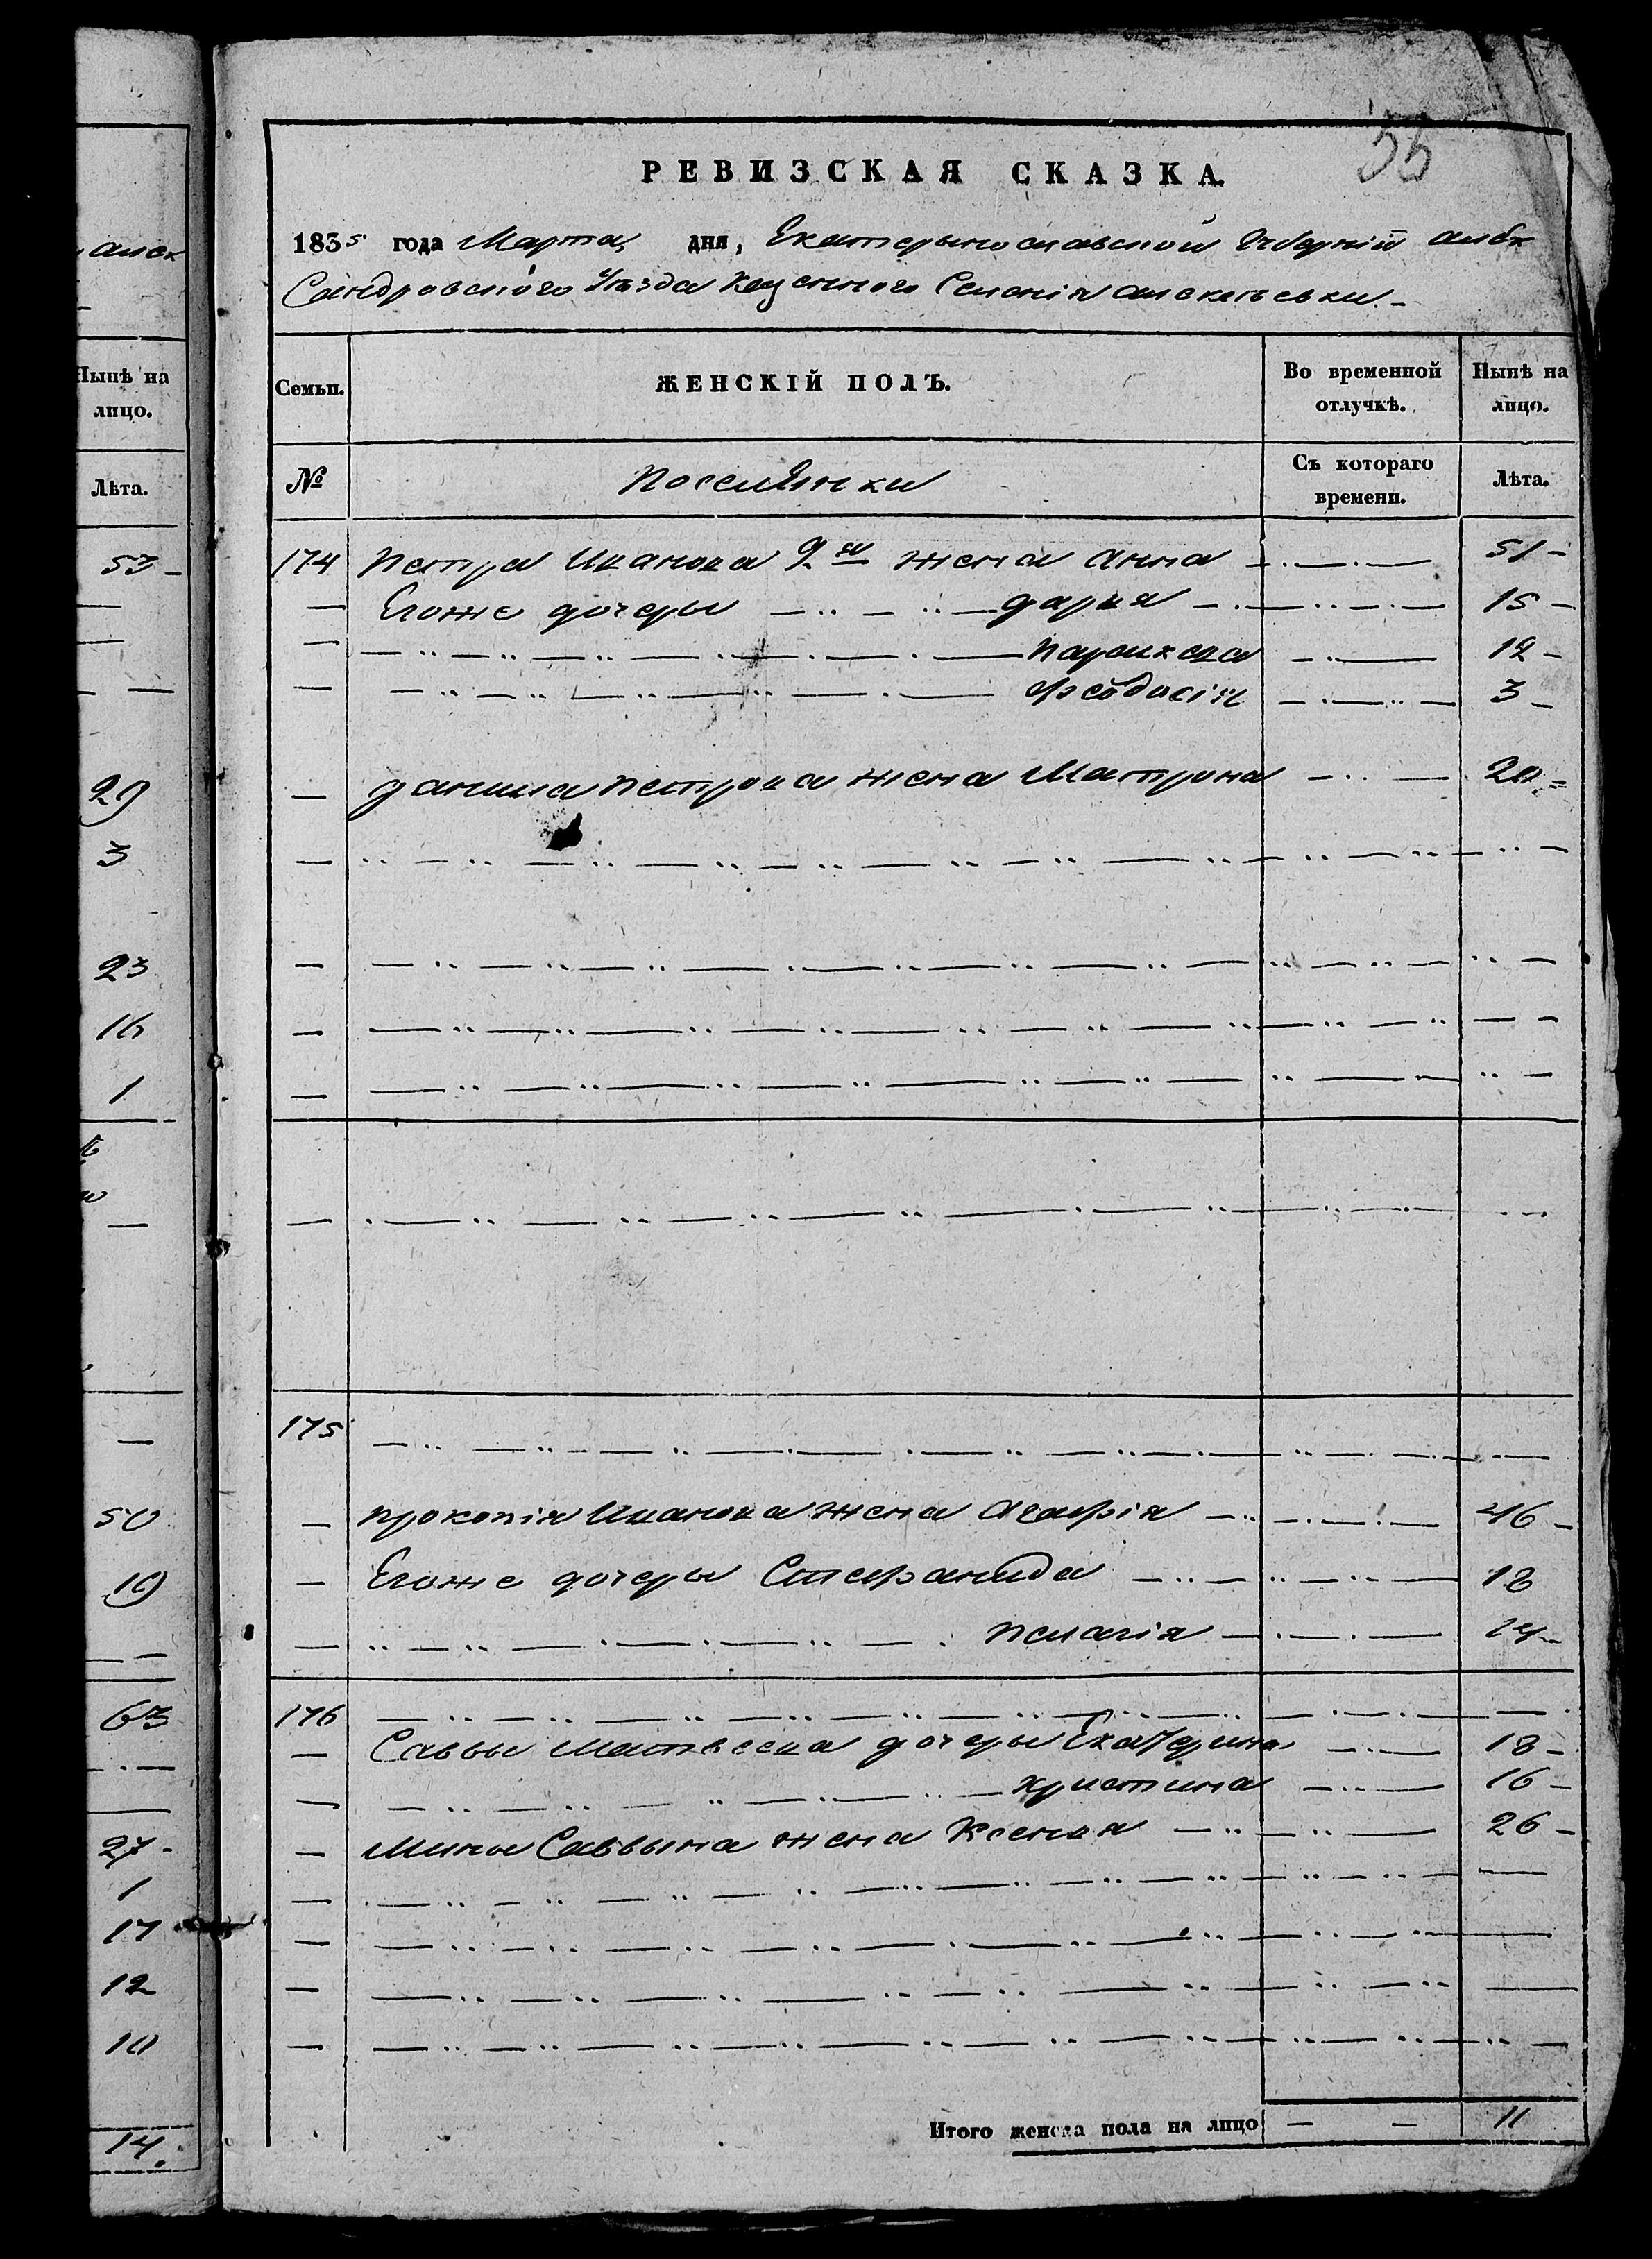 55
РЕВИЗСКАЯ СКАЗКА.
1835 года Марта дня, Екатерынославской Губернїи алек
Сандровского Уезда Казенного Селенїя алексеевки.
Семьи. ЖЕНСКІЙ ПОЛЪ. Во временной отлучкѣ. Нынѣ на лицо.
№ Поселянки Съ котораго времени. Лѣта.
174 Петра Иванова 2я жена Анна 51
Егоже дочеры дария 15
параскева 12
Феодосія 3
данила петрова жена Матрона 20
175
прокопія Иванова жена Агафія 46
Егоже дочеры Стефанида 18
пелагія 14
176
Саввы Матвеева дочеры Екатерина 18
христина 16
Мины Саввына жена Ксения 26
Итого женска пола на лицо 11
алек
Нынѣ на
лицо.
Лѣта.
53
29
3
23
16
1
50
19
63
27
1
17
12
10
14.